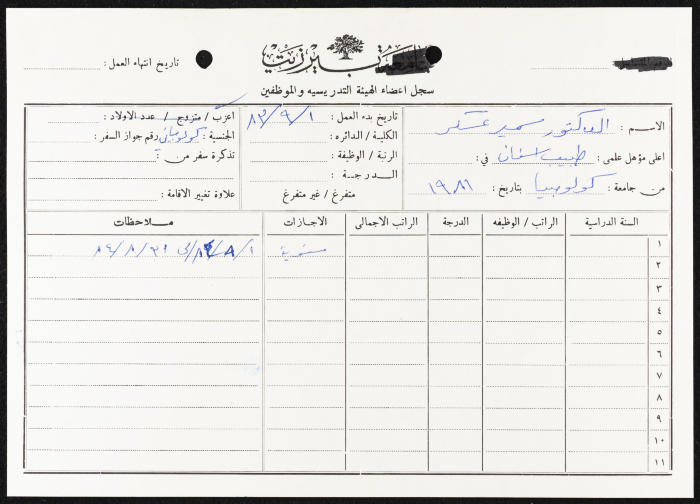 بيرزيت
تاريخ انتهاء العمل :
سجل اعضاء الهيئة التدريسيه والموظفين
الاسم : الدكتور سمير عسكر
اعلى مؤهل علمى : طبيب اسنان في :
من جامعة : كولومبيا بتاريخ : ١٩٨١
تاريخ بدء العمل : ٨٣/٩/١
الكلية / الدائره :
الرتبة / الوظيفة :
الدرجة :
متفرغ / غير متفرغ
اعزب / متزوج / عدد الاولاد :
الجنسية : كولومبياني رقم جواز السفر :
تذكرة سفر من :
علاوة تغيير الاقامة :
السنة الدراسية الراتب / الوظيفه الدرجة الراتب الاجمالى الاجازات ملاحظات
١ سنوية ٨٤/٨/١ الى ٨٤/٨/٣١
٢
٣
٤
٥
٦
٧
٨
٩
١٠
١١